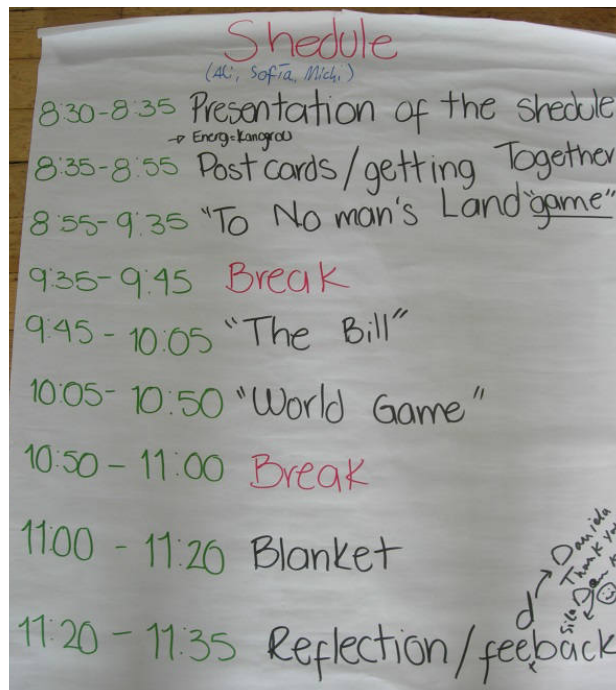 Shedule
(Ali, Sofía, Michi)
8:30-8:35 Presentation of the shedule
→ Energ=Kanogrou
8:35-8:55 Postcards/getting Together
8:55-9:35 "To No man's Land "game"
9:35-9:45 Break
9:45-10:05 "The Bill"
10:05-10:50 "World Game"
10:50-11:00 Break
11:00-11:20 Blanket
Daniela
Thank You
d
11:20-11:35 Reflection/feeback